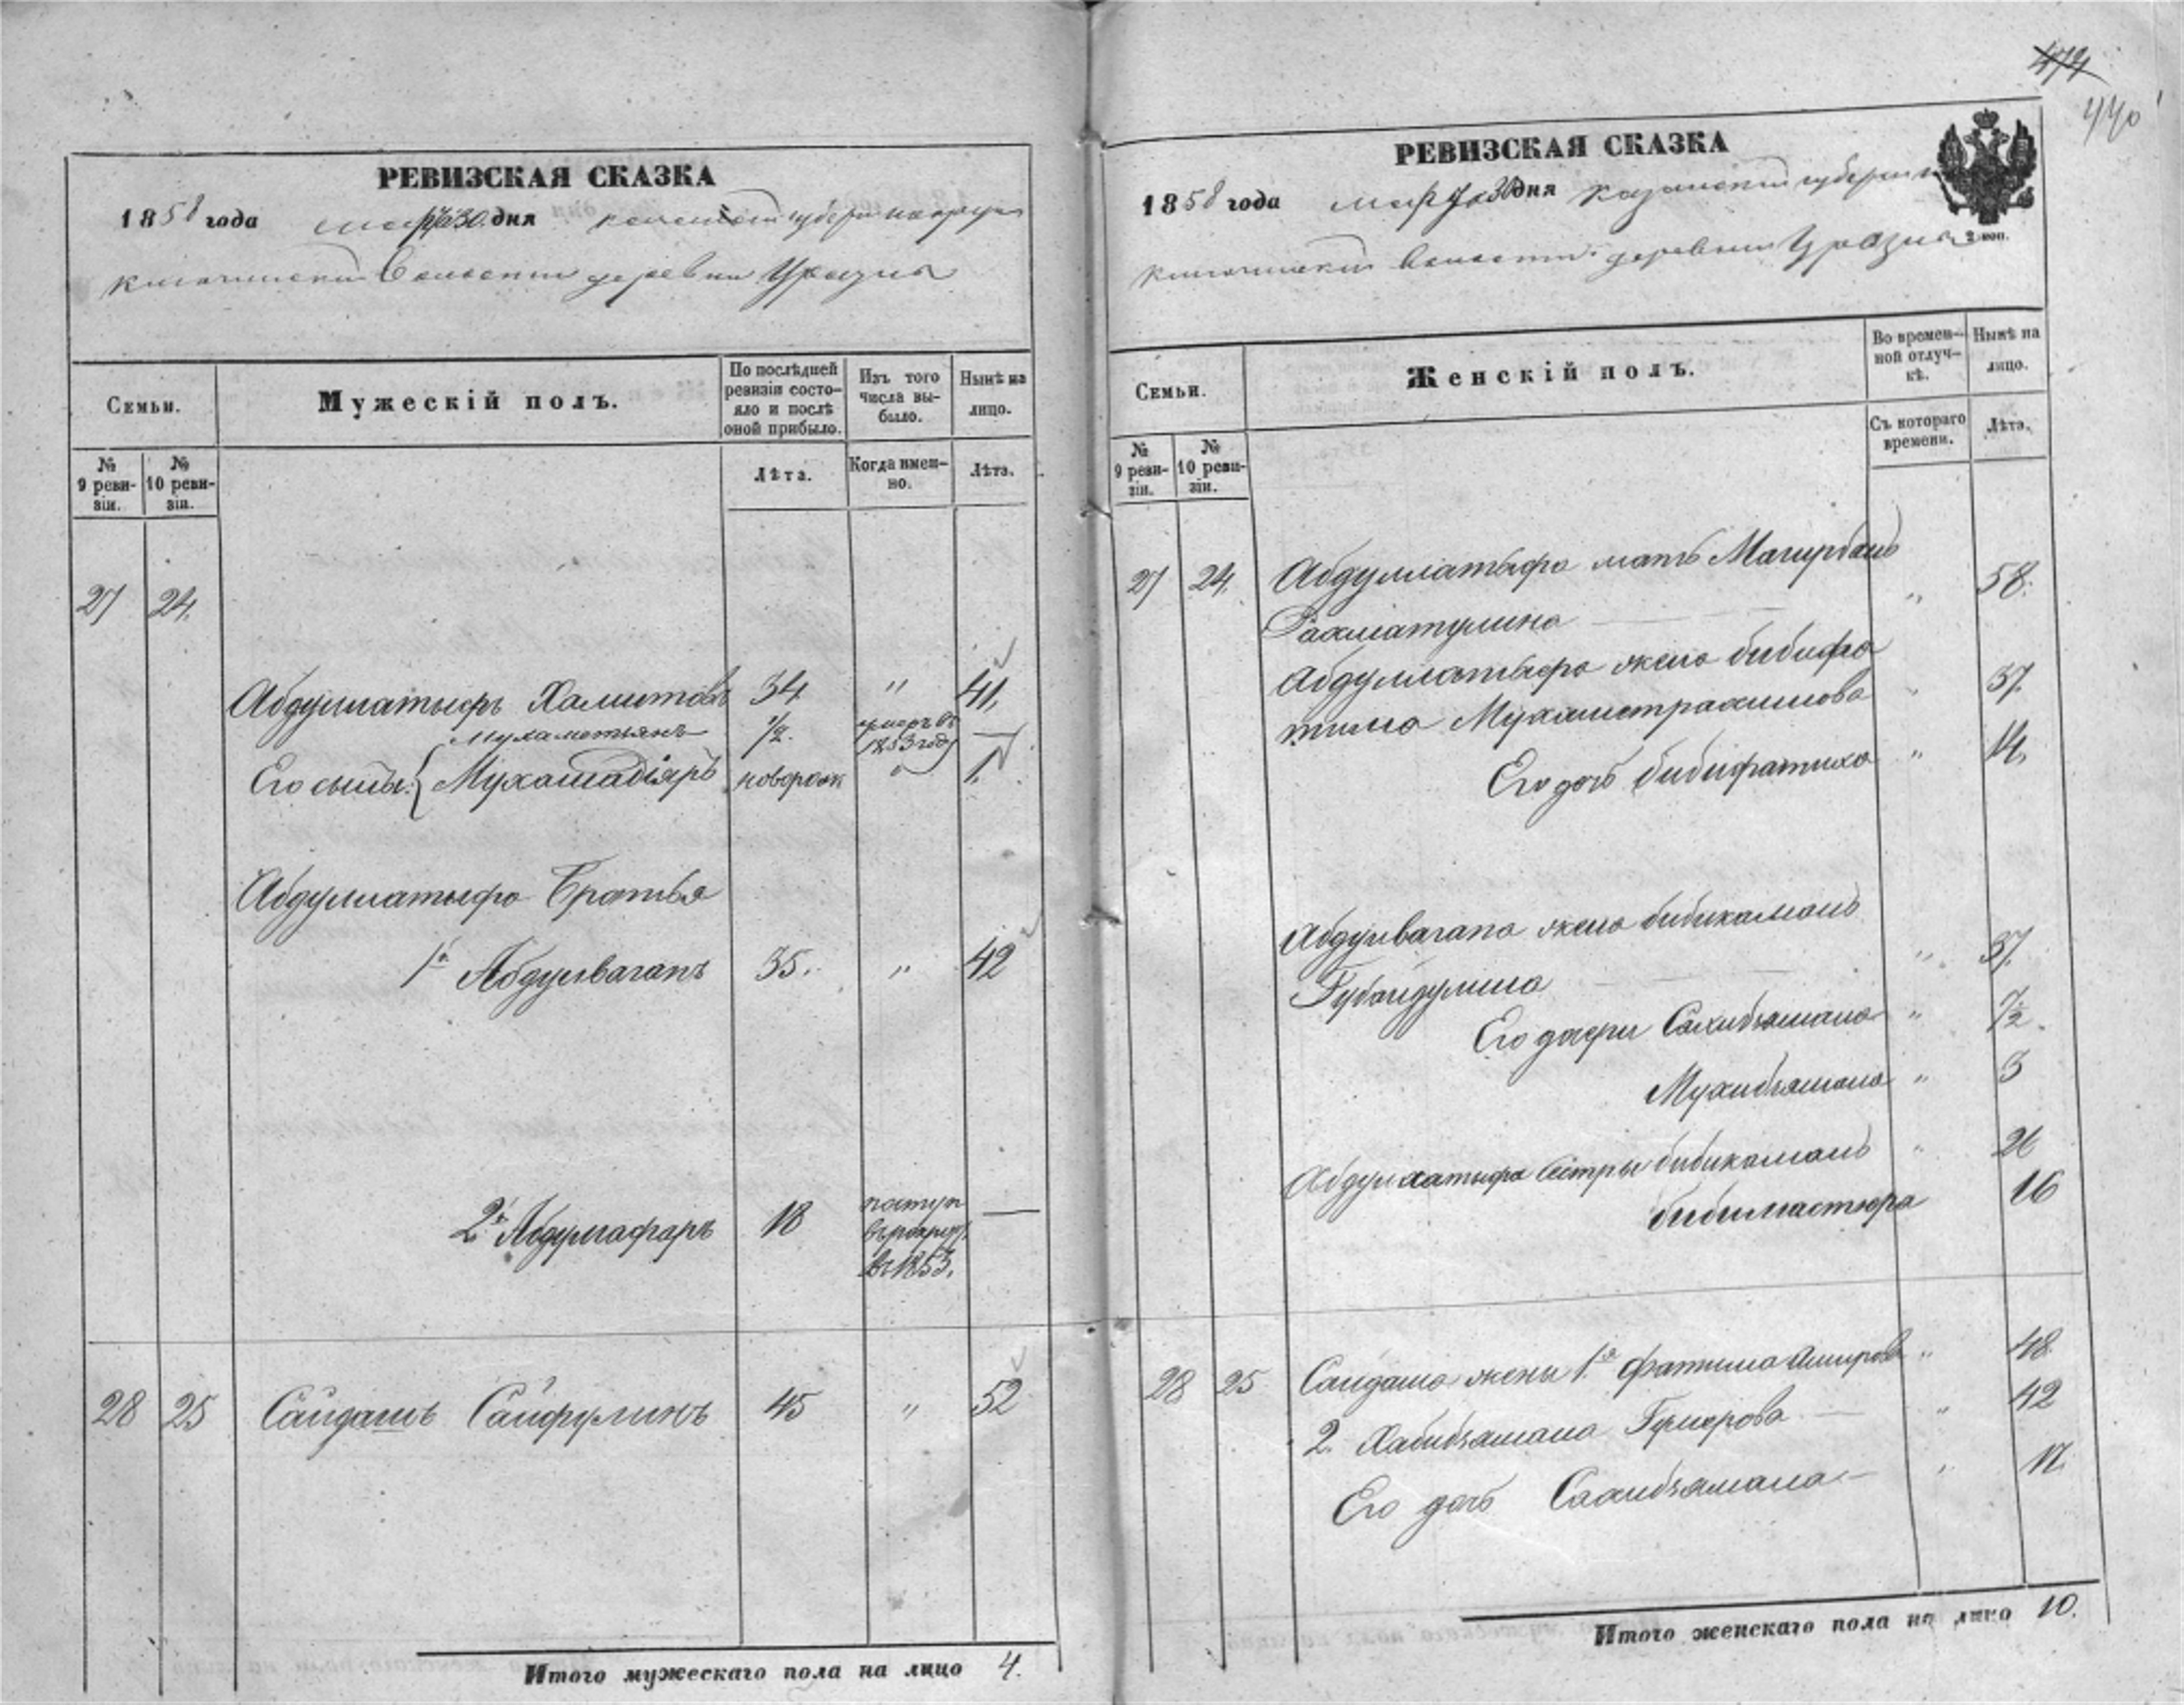 РЕВИЗСКАЯ СКАЗКА
1858 года марта 30 дня казанской губернии
волости деревни Уразла
Семьи.
Мужескій полъ.
По послѣдней ревизіи состояло и послѣ оной прибыло.
Изъ того числа выбыло.
Нынѣ на лицо.
№ 9 ревизіи.
№ 10 ревизіи.
Лѣта.
Когда именно.
Лѣта.
27 24.
Абдуллатыфъ Хамитовъ 34 " 41.
Мухаметьянъ 1/2. умеръ въ 1853 году —
Его сыны: { Мухамадіяръ новорож " 1.
Абдуллатыфа Братья
1й Абдулвагапъ 35. " 42
2й Абдулгафаръ 18 поступ въ рекруты въ 1853. —
28 25 Сайдашъ Сайфулинъ 45 " 52
Итого мужескаго пола на лицо 4.
474
440
РЕВИЗСКАЯ СКАЗКА
1858 года марта 30 дня казанской губернии
2 коп.
волости деревни Уразла
Семьи.
Женскій полъ.
Во временной отлучкѣ.
Нынѣ на лицо.
№ 9 ревизіи.
№ 10 ревизіи.
Съ котораго времени.
Лѣта.
27 24. Абдуллатыфа мать
Рахматулина — " 58.
Абдуллатыфа жена бибифа
тима Мухаметрахимова " 37.
Его дочь бибифатиха " 14.
Абдулвагапа жена бибикамалъ
Губайдулина — " 37.
Его дочери Сахибзямала " 7/2.
Мухибзямала " 3
Абдуллатыфа сестры бибикамалъ " 26
бибимастюра 16
28 25 Сайдаша жены 1я Фатима Амирова " 48
2. Хабибзямала Гумярова — " 42
Его дочь Сахибзямала — " 12.
Итого женскаго пола на лицо 10.